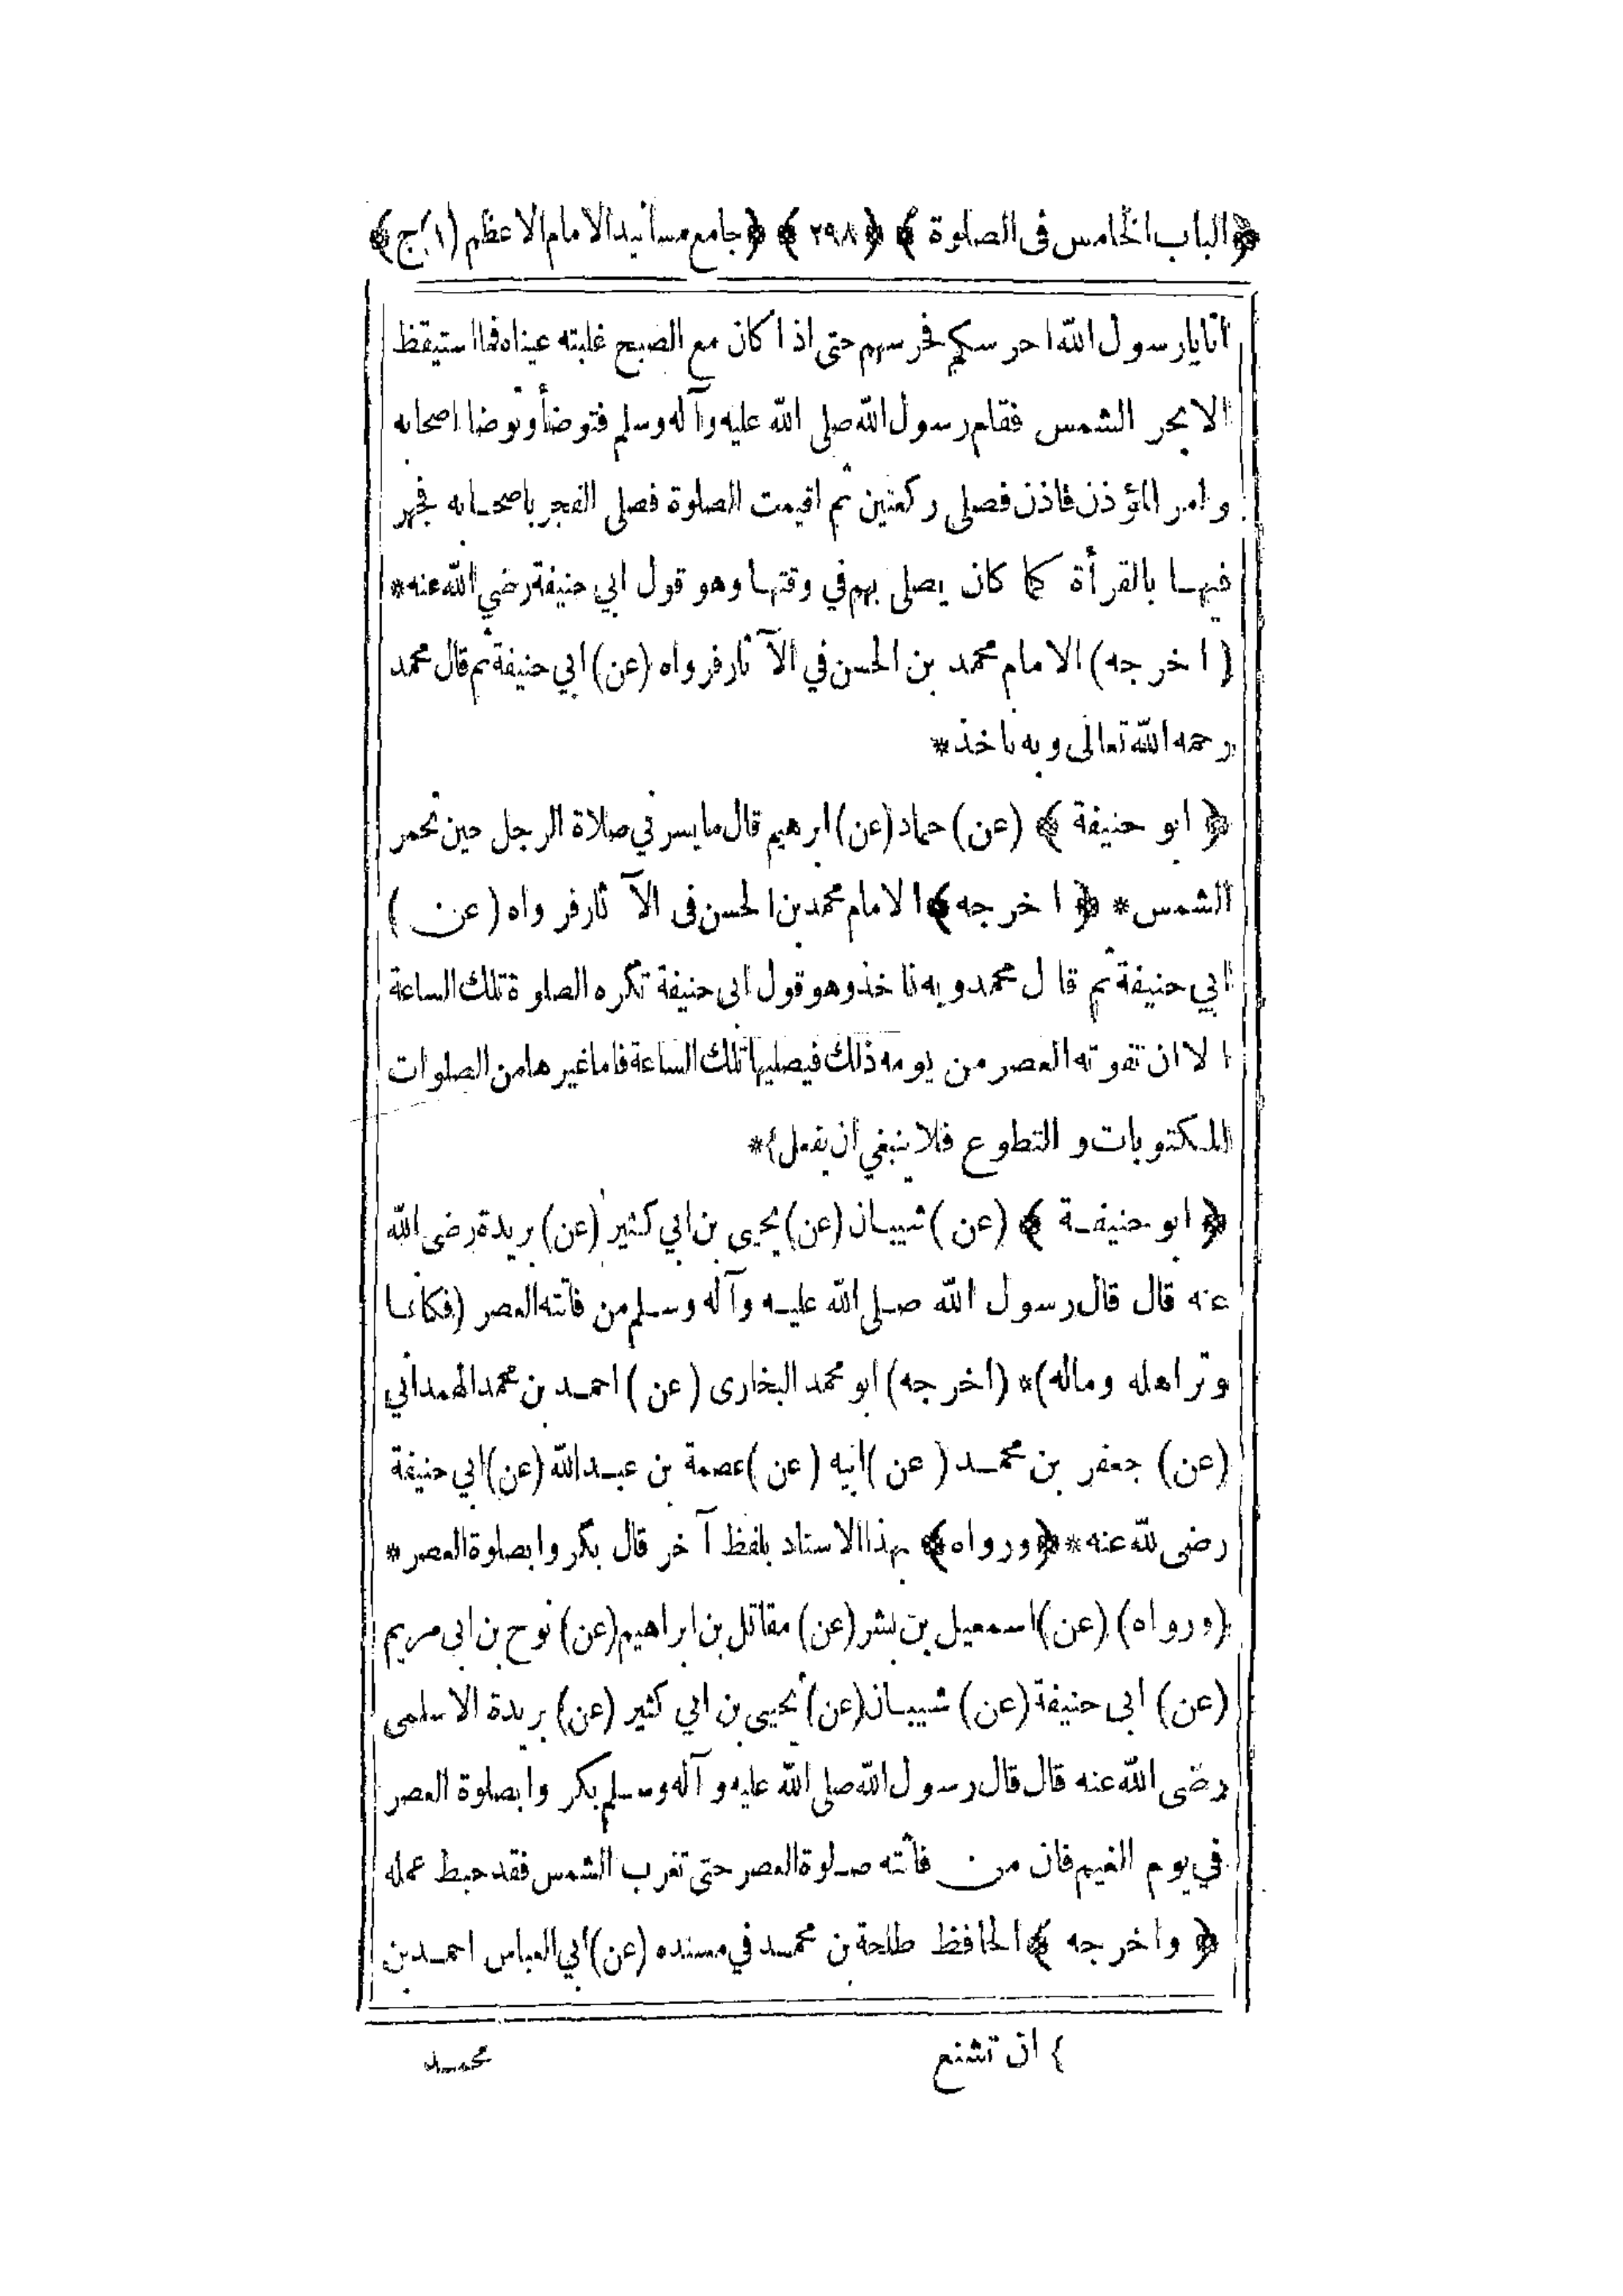 ﴿الباب الخامس فى الصلوة﴾ ﴿٢٩٨﴾ ﴿جامع مسانيد الامام الاعظم (١) ج﴾
انا يا رسول الله احرسكم فحرسهم حتى اذا كان مع الصبح غلبته عيناه فما استيقظ
الا بحر الشمس فقام رسول الله صلى الله عليه وآله وسلم فتوضأ وتوضا اصحابه
وامر المؤذن فاذن فصلى ركعتين ثم اقيمت الصلوة فصلى الفجر باصحابه فجهر
فيها بالقرأة كما كان يصلى بهم في وقتها وهو قول ابي حنيفة رضي الله عنه*
(اخرجه) الامام محمد بن الحسن في الآثار فرواه (عن) ابي حنيفة ثم قال محمد
رحمه الله تعالى وبه ناخذ*
﴿ابو حنيفة﴾ (عن) حماد (عن) ابرهيم قال ما يسرني صلاة الرجل حين تحمر
الشمس* ﴿اخرجه﴾ الامام محمد بن الحسن فى الآثار فرواه (عن)
ابي حنيفة ثم قال محمد وبه ناخذ وهو قول ابى حنيفة تكره الصلوة تلك الساعة
الا ان تفوته العصر من يومه ذلك فيصليها تلك الساعة فاما غيرها من الصلوات
المكتوبات و التطوع فلا ينبغي ان يفعل}*
﴿ابو حنيفة﴾ (عن) شيبان (عن) يحيى بن ابي كثير (عن) بريدة رضى الله
عنه قال قال رسول الله صلى الله عليه وآله وسلم من فاتته العصر (فكانما
وتر اهله وماله)* (اخرجه) ابو محمد البخارى (عن) احمد بن محمد الهمداني
(عن) جعفر بن محمد (عن) ابيه (عن) عصمة بن عبد الله (عن) ابي حنيفة
رضى لله عنه* ﴿ورواه﴾ بهذا الاسناد بلفظ آخر قال بكروا بصلوة العصر*
(ورواه) (عن) اسمعيل بن بشر (عن) مقاتل بن ابراهيم (عن) نوح بن ابى مريم
(عن) ابى حنيفة (عن) شيبان (عن) يحيى بن ابي كثير (عن) بريدة الاسلمى
رضى الله عنه قال قال رسول الله صلى الله عليه وآله وسلم بكروا بصلوة العصر
في يوم الغيم فان من فاتته صلوة العصر حتى تغرب الشمس فقد حبط عمله
﴿واخرجه﴾ الحافظ طلحة بن محمد في مسنده (عن) ابي العباس احمد بن
} ان تشنع
محمد